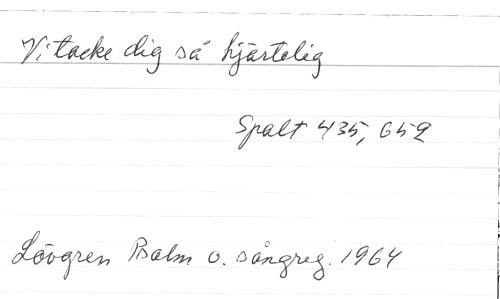 Vi tacke dig så hjärtelig
Spalt 435, 652
Lövgren Psalm o. sångreg. 1964